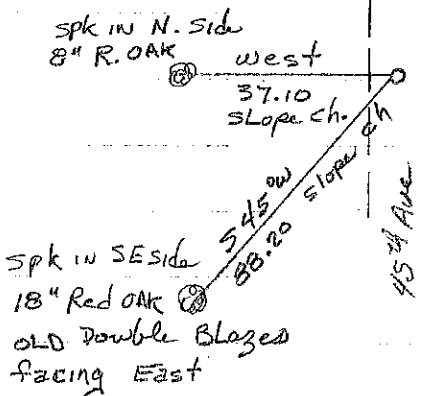 spk in N. Side
8" R. OAK
west
37.10
SLope ch.
S45°W slope ch
88.20
45th Ave
spk in SE Side
18" Red OAK
OLD Dowble Blazes
facing East